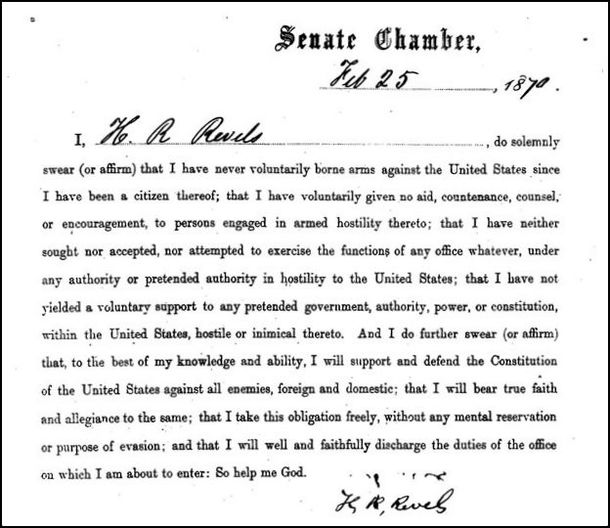 Senate Chamber,
Feb 25, 1870.
I, H. R Revels, do solemnly
swear (or affirm) that I have never voluntarily borne arms against the United States since
I have been a citizen thereof; that I have voluntarily given no aid, countenance, counsel,
or encouragement, to persons engaged in armed hostility thereto; that I have neither
sought nor accepted, nor attempted to exercise the functions of any office whatever, under
any authority or pretended authority in hostility to the United States; that I have not
yielded a voluntary support to any pretended government, authority, power, or constitution,
within the United States, hostile or inimical thereto. And I do further swear (or affirm)
that, to the best of my knowledge and ability, I will support and defend the Constitution
of the United States against all enemies, foreign and domestic; that I will bear true faith
and allegiance to the same; that I take this obligation freely, without any mental reservation
or purpose of evasion; and that I will well and faithfully discharge the duties of the office
on which I am about to enter: So help me God.
H. R. Revels